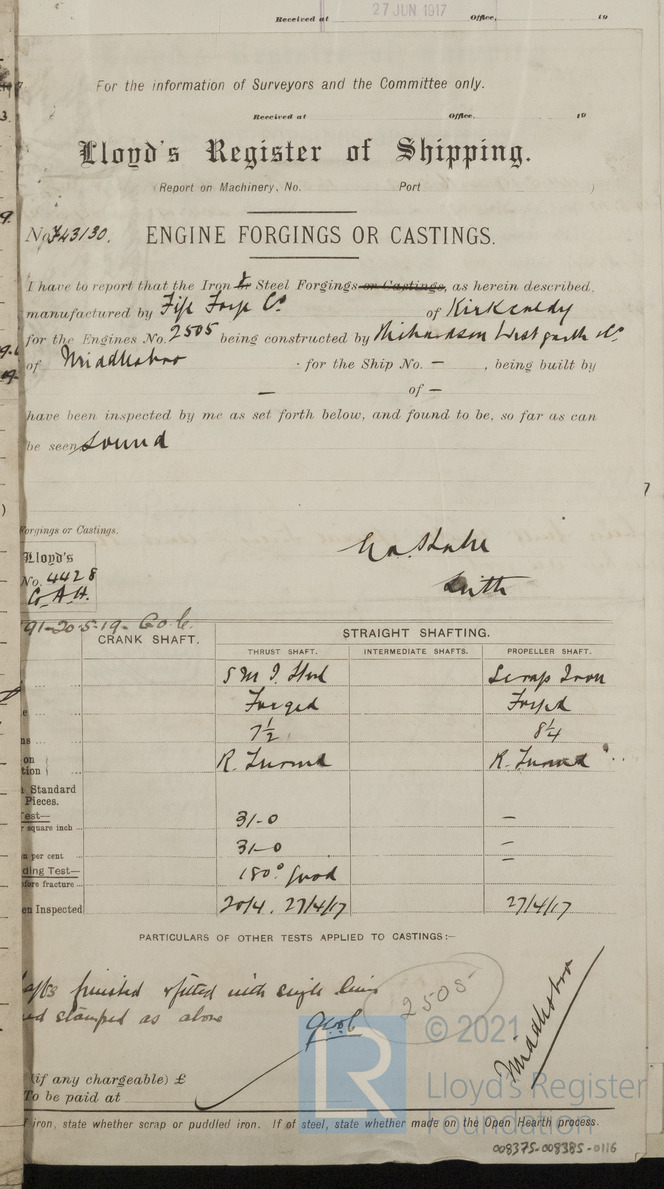 27 JUN 1917
Received at Office, 19
For the information of Surveyors and the Committee only.
Received at Office. 19
Lloyd's Register of Shipping.
(Report on Machinery, No. Port )
No. 43130. ENGINE FORGINGS OR CASTINGS.
I have to report that the Iron & Steel Forgings or Castings, as herein described,
manufactured by Fife Forge Co of Kirkcaldy
for the Engines No. 2505 being constructed by Richardson Westgarth & Co
of Middlesbro for the Ship No. – , being built by
– of –
have been inspected by me as set forth below, and found to be, so far as can
be seen sound
Forgings or Castings.
Lloyd's
No. 4428
G.A.H.
Leith
20-5-19-
CRANK SHAFT. STRAIGHT SHAFTING.
THRUST SHAFT. INTERMEDIATE SHAFTS. PROPELLER SHAFT.
S M I Steel Scrap Iron
Forged Forged
7½ 8¼
R. Turned R. Turned
Standard
Pieces.
Test—
square inch 31-0 –
per cent 31-0 –
ding Test— –
fore fracture 180° good
en Inspected 20/4. 27/4/17 27/4/17
PARTICULARS OF OTHER TESTS APPLIED TO CASTINGS:–
finished & fitted with single liner
stamped as above
2505
Middlesbro
(if any chargeable) £
To be paid at
iron, state whether scrap or puddled iron. If of steel, state whether made on the Open Hearth process.
© 2021
LR
Lloyd's Register
Foundation
008375-008385-0116